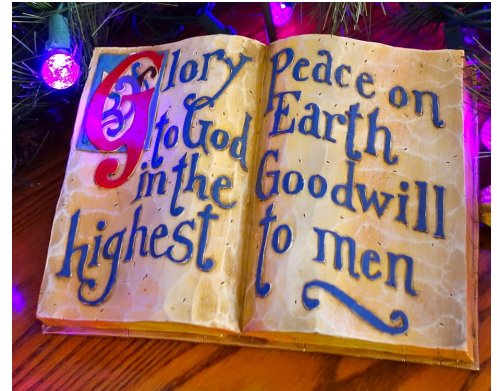 Glory
to God
in the
highest
Peace on
Earth
Goodwill
to men